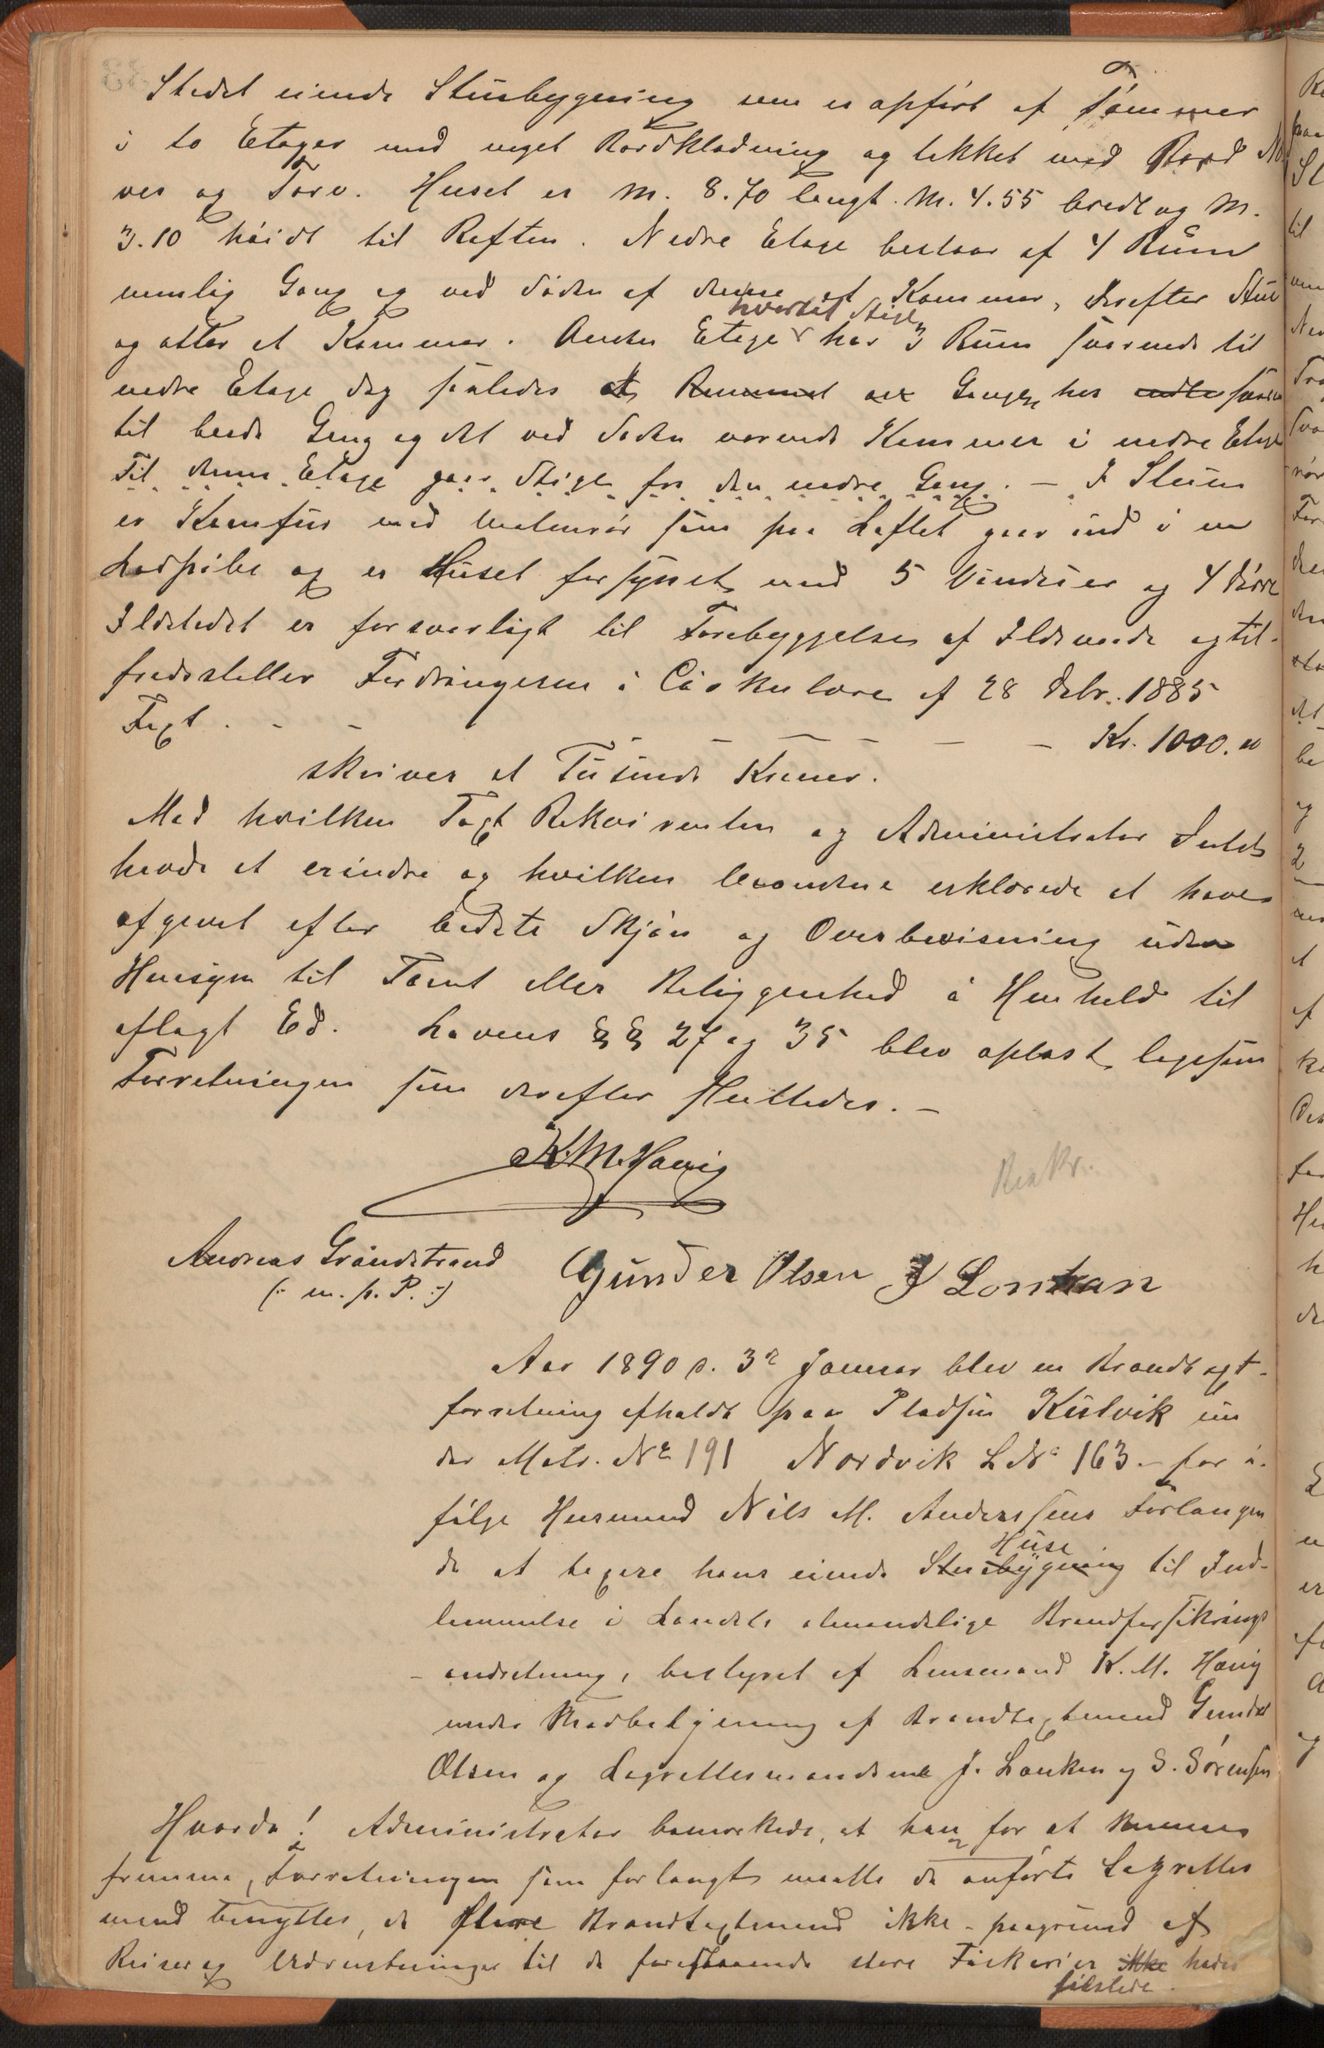 Stedet eiende Stuebygning som er opført af Tømmer
i to Etager med noget Bordklædning og tækket med Bord Næ
ver og Torv. Huset er M. 8.70 langt. M. 4.55 bredt og M.
3.10 høidt til Raften. Nedre Etage bestaar af 4 Rum
nemlig Gang og ved Siden af denne et Kammer, derefter Stue
hvortil Stige
og atter et Kammer. Anden Etage har 3 Rum svarende til
nedre Etage dog saaledes at Rummet over Gangen har svaren
til baade Gang og det ved Siden værende Kammer i nedre Etage
Til denne Etage gaar Stige fra den nedre Gang. - I Stuen
er Komfur med Malmrør som paa Loftet gaar ind i en
Ladpibe og er Huset forsynet med 5 Vinduer og 4 Dørre
Ildstedet er forsvarligt til Forebyggelse af Ildsvaade og til-
fredsstiller Fordringerne i Cirkulære af 28 Debr. 1885
Taxt. - - - - - - - - Kr. 1000.00
skriver et Tusinde Kroner.
Med hvilken Taxt Rekvirenten og Administrator Intet
havde at erindre og hvilken Mændene erklærede at have
afgivet efter bedste Skjøn og Overbevisning uden
Hensyn til Tomt eller Beliggenhed i Henhold til
aflagt Ed. Lovens §§ 27 og 35 blev oplæst ligesom
Forretningen som derefter sluttedes. -
K. M. Havig
Andreas Grøndstrand Gunder Olsen J Lonkan
(: m. p. P. :)
Aar 1890 d. 3die Januar blev en Brandtaxt-
forretning afholdt paa Pladsen Kulvik un
der Matr. No 191 Nordvik L. No 163 - for i-
følge Husmand Nils M. Anderssens Forlangen
Huse
de at taxere hans eiende Stuebygning til Ind-
lemmelse i Landets almindelige Brandforsikrings
- indretning, bestyret af Lensmand K. M. Havig
under Medbetjening af Brandtaxtmand Gunder
Olsen og Lagrettesmændene J. Lonken og S. Sørensen
Hvorda! Administrator bemærkede, at han for at kunne
fremme Forretningen som forlangt maatte de anførte Lagrettes
mænd benyttes, da flere Brandtaxtmænd ikke - paagrund af
Reiser og Udrustninger til de forestaaende store Fiskerier ikke havdes
tilstede.